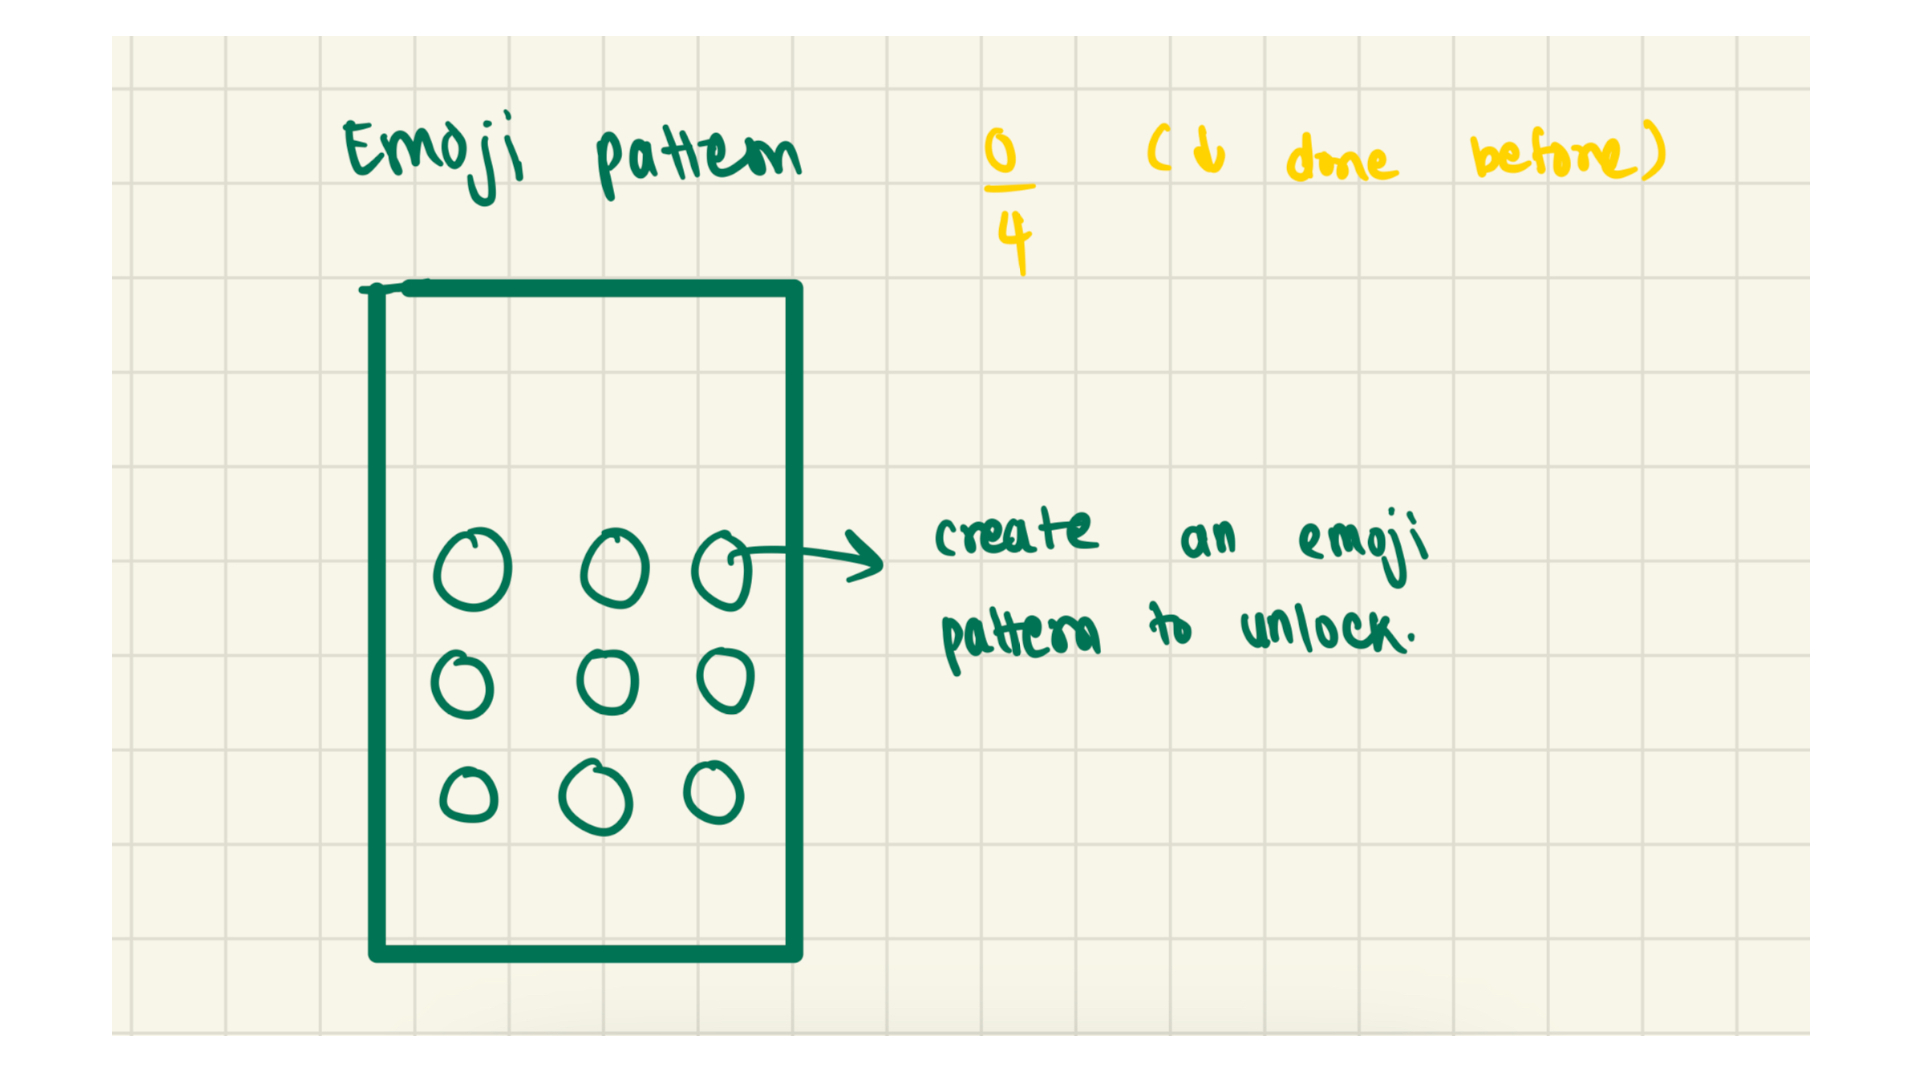 Emoji pattern 0/4 (↓ done before)
create an emoji
pattern to unlock.